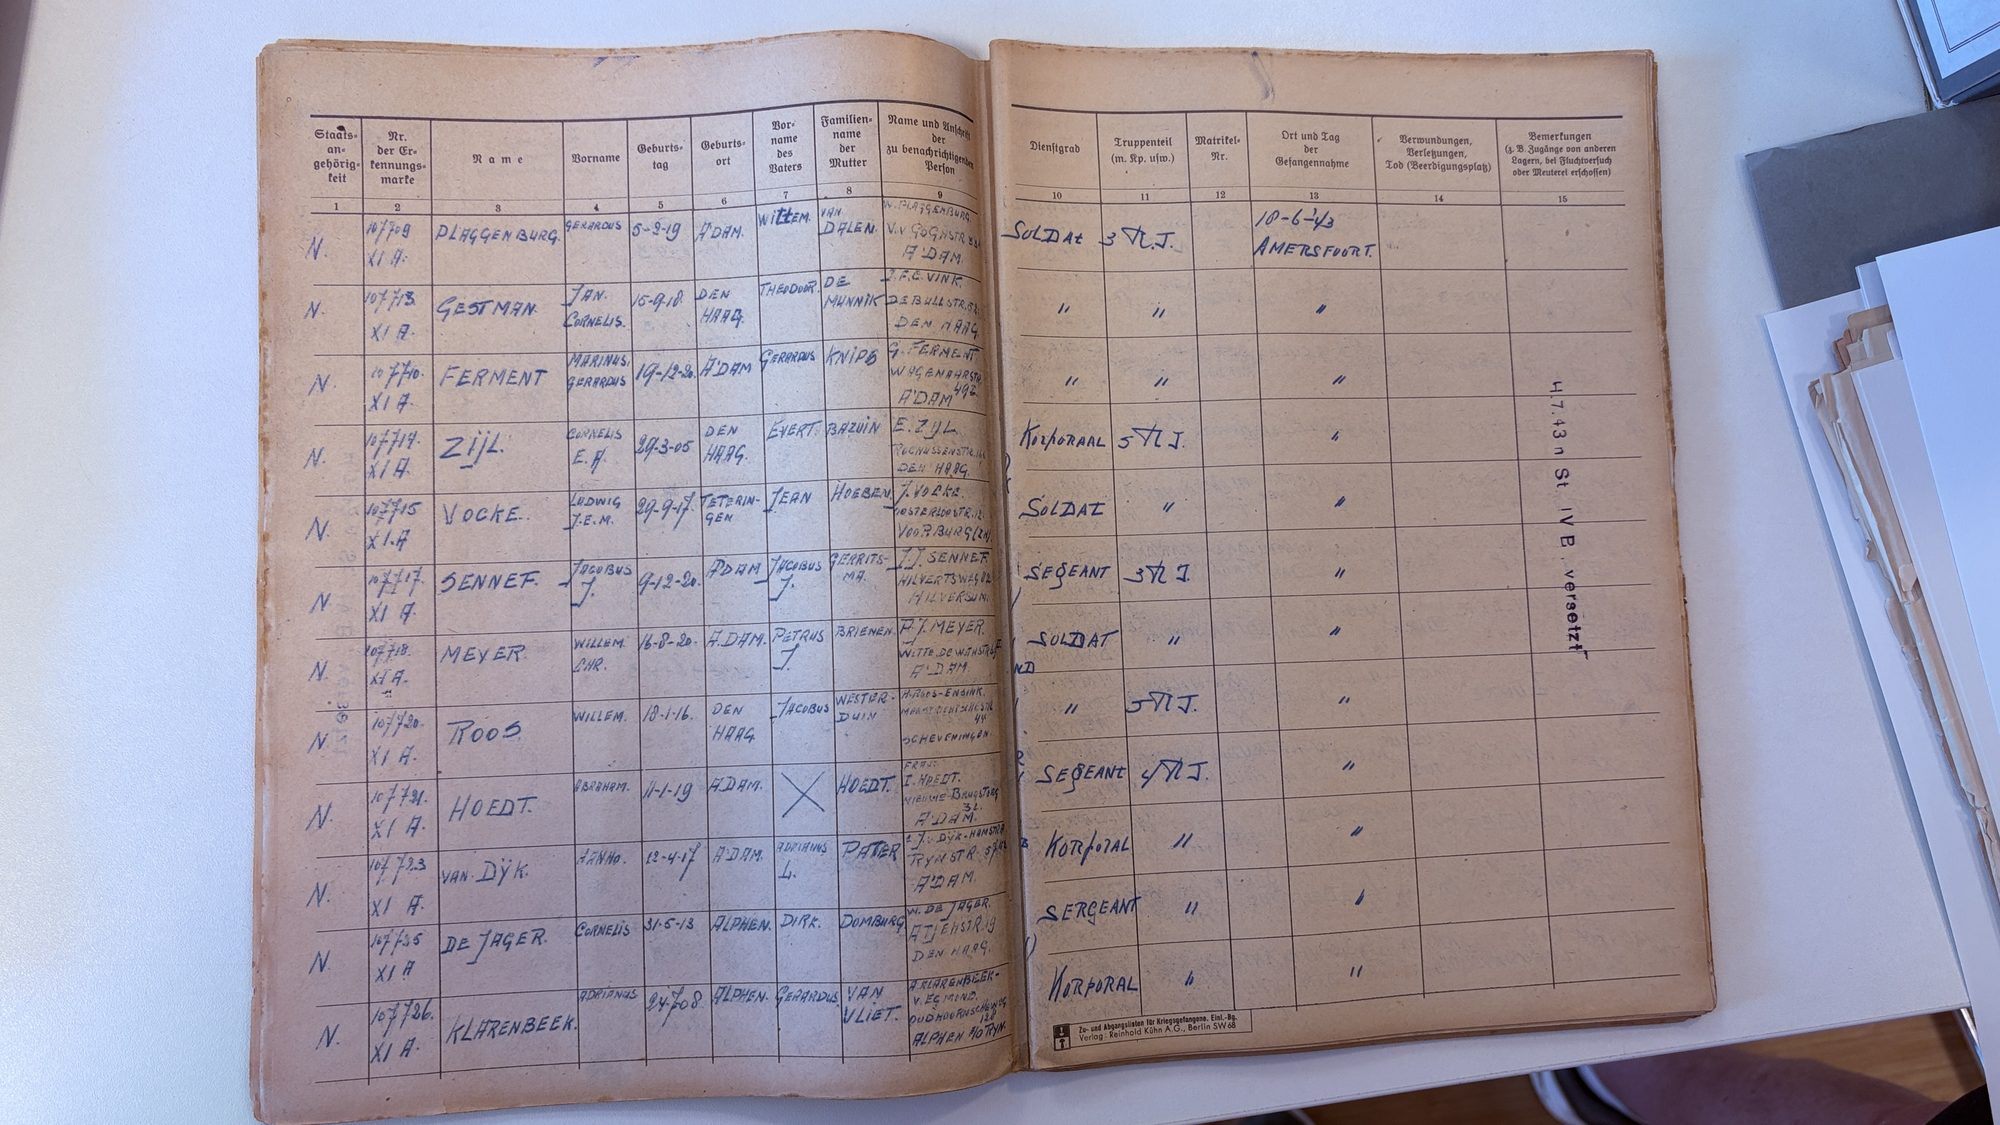 Staats-
an-
gehörig-
keit
Nr.
der Er-
kennungs-
marke
Name
Vorname
Geburts-
tag
Geburts-
ort
Vor-
name
des
Vaters
Familien-
name
der
Mutter
Name und Anschrift
der
zu benachrichtigenden
Person
Dienstgrad
Truppenteil
(m. Kp. usw.)
Matrikel-
Nr.
Ort und Tag
der
Gefangennahme
Verwundungen,
Verletzungen,
Tod (Beerdigungsplatz)
Bemerkungen
(z. B. Zugänge von anderen
Lagern, bei Fluchtversuch
oder Meuterei erschossen)
1 2 3 4 5 6 7 8 9 10 11 12 13 14 15
N.
107709
XI A.
PLAGGENBURG.
GERARDUS
5-2-19
A'DAM.
WILLEM.
VAN
DALEN.
W. PLAGGENBURG.
V. GOGHSTR
A'DAM.
SOLDAt
3 R.J.
18-6-43
AMERSFOORT.
N.
107713.
XI A.
GESTMAN.
JAN.
CORNELIS.
15-9-18.
DEN
HAAG.
THEODOOR.
DE
MUNNIK
J.F.E. VINK.
DE BULLSTR.
DEN HAAG.
" " "
N.
107710.
XI A.
FERMENT
MARINUS.
GERARDUS
19-12-20.
A'DAM
GERARDUS
KNIPS
G. FERMENT
WAGENAARSTR.
49
A'DAM
" " "
N.
107714.
XI A.
ZijL.
CORNELIS
E. A.
29-3-05
DEN
HAAG.
EVERT.
BAZUIN
E. ZIJL
DEN HAAG.
KORPORAAL
5 R J.
"
N.
107715
XI.A
VOCKE.
LUDWIG
J.E.M.
29-9-17.
TETERIN-
GEN
JEAN
HOEBEN.
J. VOCKE.
VOORBURG (ZH).
SOLDAT
" "
N.
107717.
XI A.
SENNEF.
JACOBUS
J.
9-12-20.
A'DAM
JACOBUS
J.
GERRITS-
MA.
J.J. SENNEF.
HILVERTSWEG
HILVERSUM.
SEGEANT
3 R J.
"
N.
107718.
XI A.
MEYER.
WILLEM.
CHR.
16-8-20.
A.DAM.
PETRUS
J.
BRIENEN.
P.J. MEYER.
WITTE.DE.WITHSTR.
A'DAM.
SOLDAT
" "
N.
107720.
XI A.
ROOS
WILLEM.
18-1-16.
DEN
HAAG.
JACOBUS
WESTER-
DUIN
ROOS-ENSINK.
44
SCHEVENINGEN
"
5 R J.
"
N.
107721.
XI A.
HOEDT.
ABRAHAM.
11-1-19
A.DAM.
X
HOEDT.
I. HOEDT.
NIEUWE BRUGSTEEG
A'DAM.
SEGEANt
4 R J.
"
N.
107723
XI A.
VAN. DŸK.
HANNO.
12-4-17
A'DAM.
ADRIANUS
L.
PATER
J. DŸK-HAMSTRA
RYNSTR.
A'DAM.
KORPORAL
" "
N.
107725
XI A
DE JAGER.
CORNELIS
31-5-13
ALPHEN.
DIRK.
DOMBURG.
W. DE JAGER.
ATJEHSTR.19
DEN HAAG.
SERGEANT
" "
N.
107726.
XI A.
KLARENBEEK.
ADRIANUS
24-7-08
ALPHEN.
GERARDUS
VAN
VLIET.
A.KLARENBEEK-
V. EGMOND.
ALPHEN A/D RYN.
KORPORAL
" "
4.7.43 n St IV B. versetzt
Zu- und Abgangslisten für Kriegsgefangene. Einl.-Bg.
Verlag: Reinhold Kühn A.G., Berlin SW 68